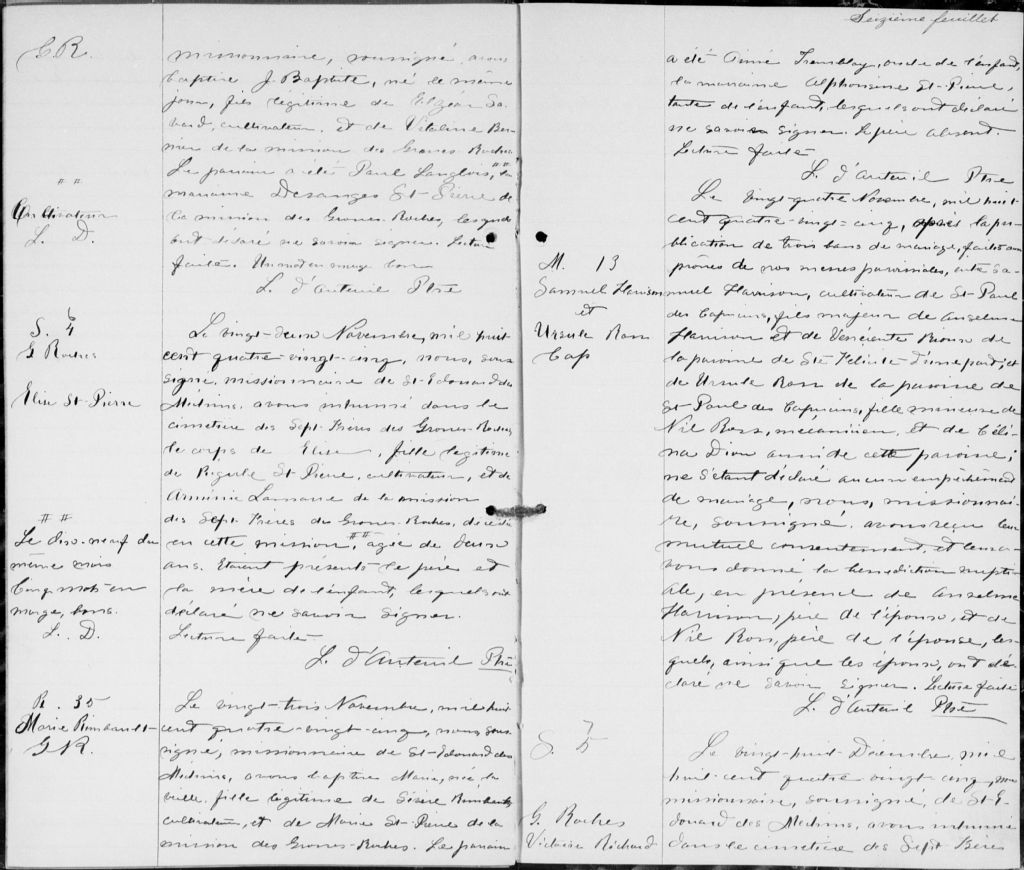 G. R.
missionnaire, soussigné avons
baptisé J. Baptiste, né le même
jour, fils légitime de Elzéar Sa-
vard, cultivateur, et de Vitaline Ber-
nier de la mission des Grosses-Roches
Le parrain a été Paul Langlois, ## la
marraine Desanges St-Pierre de
la mission des Grosses-Roches, lesquels
ont déclaré ne savoir signer. Lecture
faite. Un mot en marge bon
L. d'Auteuil Ptre
##
Cultivateur
L. D.
S. 6
4
G Roches
Elise St-Pierre
Le vingt-deux Novembre, mil huit
cent quatre-vingt-cinq, nous, sous
signé, missionnaire de St-Edouard des
Méchins, avons inhumé dans le
cimetière des Sept-Frères des Grosses-Roches
le corps de Elise, fille légitime
de St-Pierre, cultivateur, et de
Arménie Lamarre de la mission
des Sept-Frères des Grosses-Roches, décédée
en cette mission, ## âgée de deux
ans. Etaient présents le père et
la mère de l'enfant, lesquels ont
déclaré ne savoir signer.
Lecture faite
L. d'Auteuil Ptre
##
Le Dix-neuf du
même mois
Cinq mots en
marge, bons.
L. D.
B. 35
Marie Rimbault
G R.
Le vingt-trois Novembre, mil huit
cent quatre-vingt-cinq, nous sous-
signé, missionnaire de St-Edouard des
Méchins, avons baptisé Marie, née la
veille, fille légitime de Désiré Rimbault,
cultivateur, et de Marie St-Pierre de la
mission des Grosses-Roches. Le parrain
Seizième feuillet
a été Aimé Tremblay, oncle de l'enfant,
la marraine Alphonsine St-Pierre,
tante de l'enfant, lesquels ont déclaré
ne savoir signer. Le père absent.
Lecture faite
L. d'Auteuil Ptre
M. 13
Samuel Harrison
et
Ursule Ross
Cap
Le vingt-quatre Novembre, mil huit
cent quatre-vingt-cinq, après la pu-
blication de trois bans de mariage, faite aux
prônes de nos messes paroissiales, entre Sa-
muel Harrison, cultivateur de St-Paul
des Capucins, fils majeur de Anselme
Harrison et de
la paroisse de Ste Félicité d'une part; et
de Ursule Ross de la paroisse de
St-Paul des Capucins, fille mineure de
Nil Ross, mécanicien, et de Céli-
na Dion aussi de cette paroisse;
ne s'étant déclaré aucun empêchement
de mariage, nous, missionnai-
re, soussigné, avons reçu leur
mutuel consentement, et leur a-
vons donné la bénédiction nupti-
ale, en présence de Anselme
Harrison, père de l'époux, et de
Nil Ross, père de l'épouse, les-
quels, ainsi que les époux, ont dé-
claré ne savoir signer. Lecture faite
L. d'Auteuil Ptre
S. 7
5
G. Roches
Victoire Richard
Le vingt-huit Décembre, mil
huit-cent quatre vingt-cinq, nous
missionnaire, soussigné, de St-E-
douard des Méchins, avons inhumé
dans le cimetière des Sept Frères